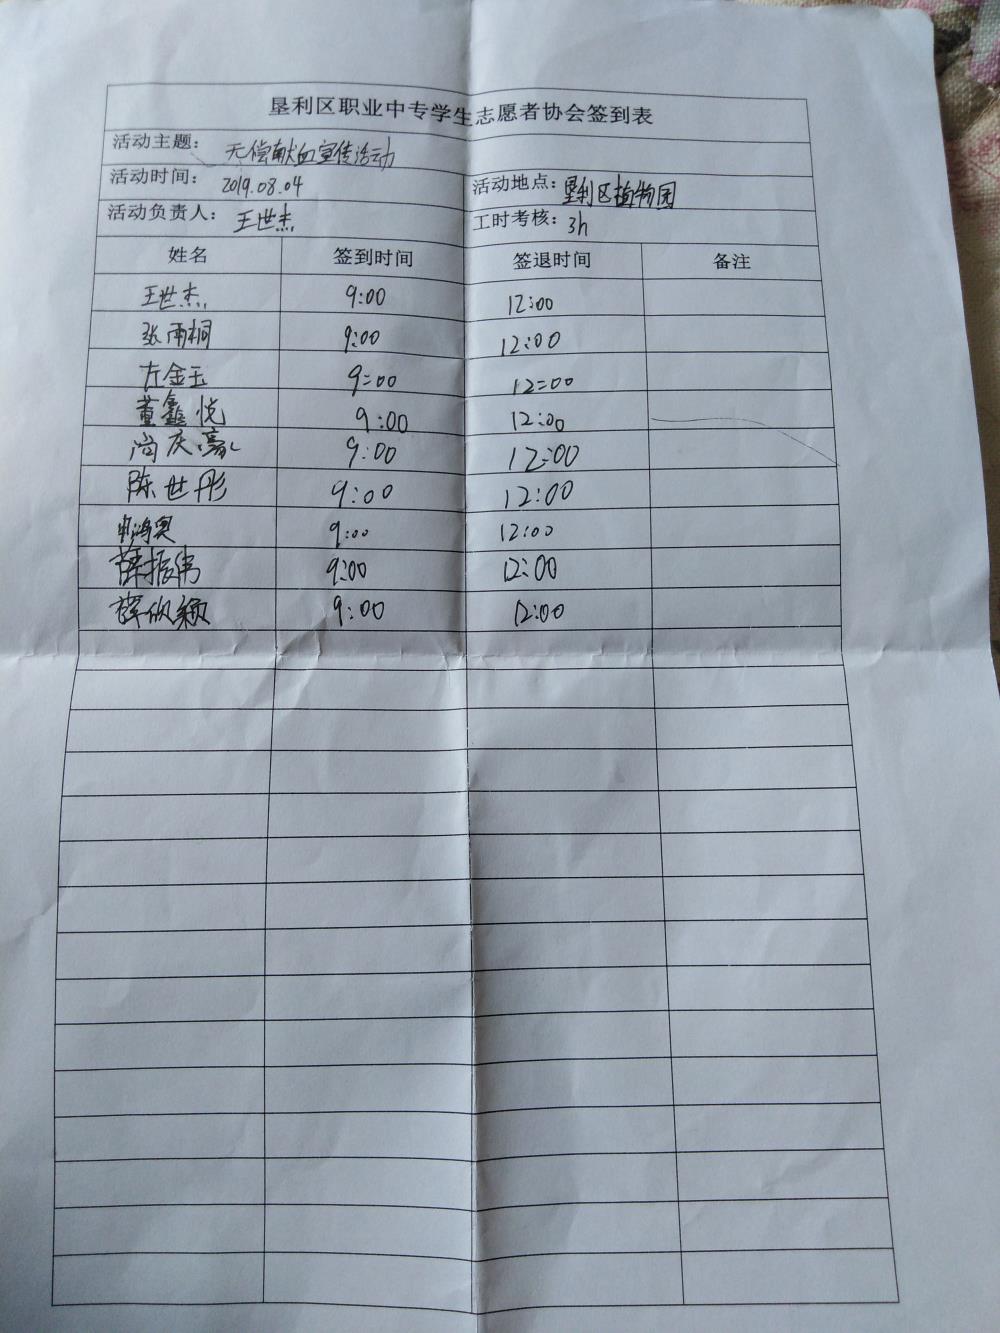 垦利区职业中专学生志愿者协会签到表
活动主题：无偿献血宣传活动
活动时间：2019.08.04 活动地点：垦利区植物园
活动负责人：王世杰 工时考核：3h
姓名 签到时间 签退时间 备注
王世杰 9:00 12:00
张雨桐 9:00 12:00
左金玉 9:00 12:00
董鑫悦 9:00 12:00
尚庆豪 9:00 12:00
陈世彤 9:00 12:00
9:00 12:00
薛振伟 9:00 12:00
薛欣颖 9:00 12:00